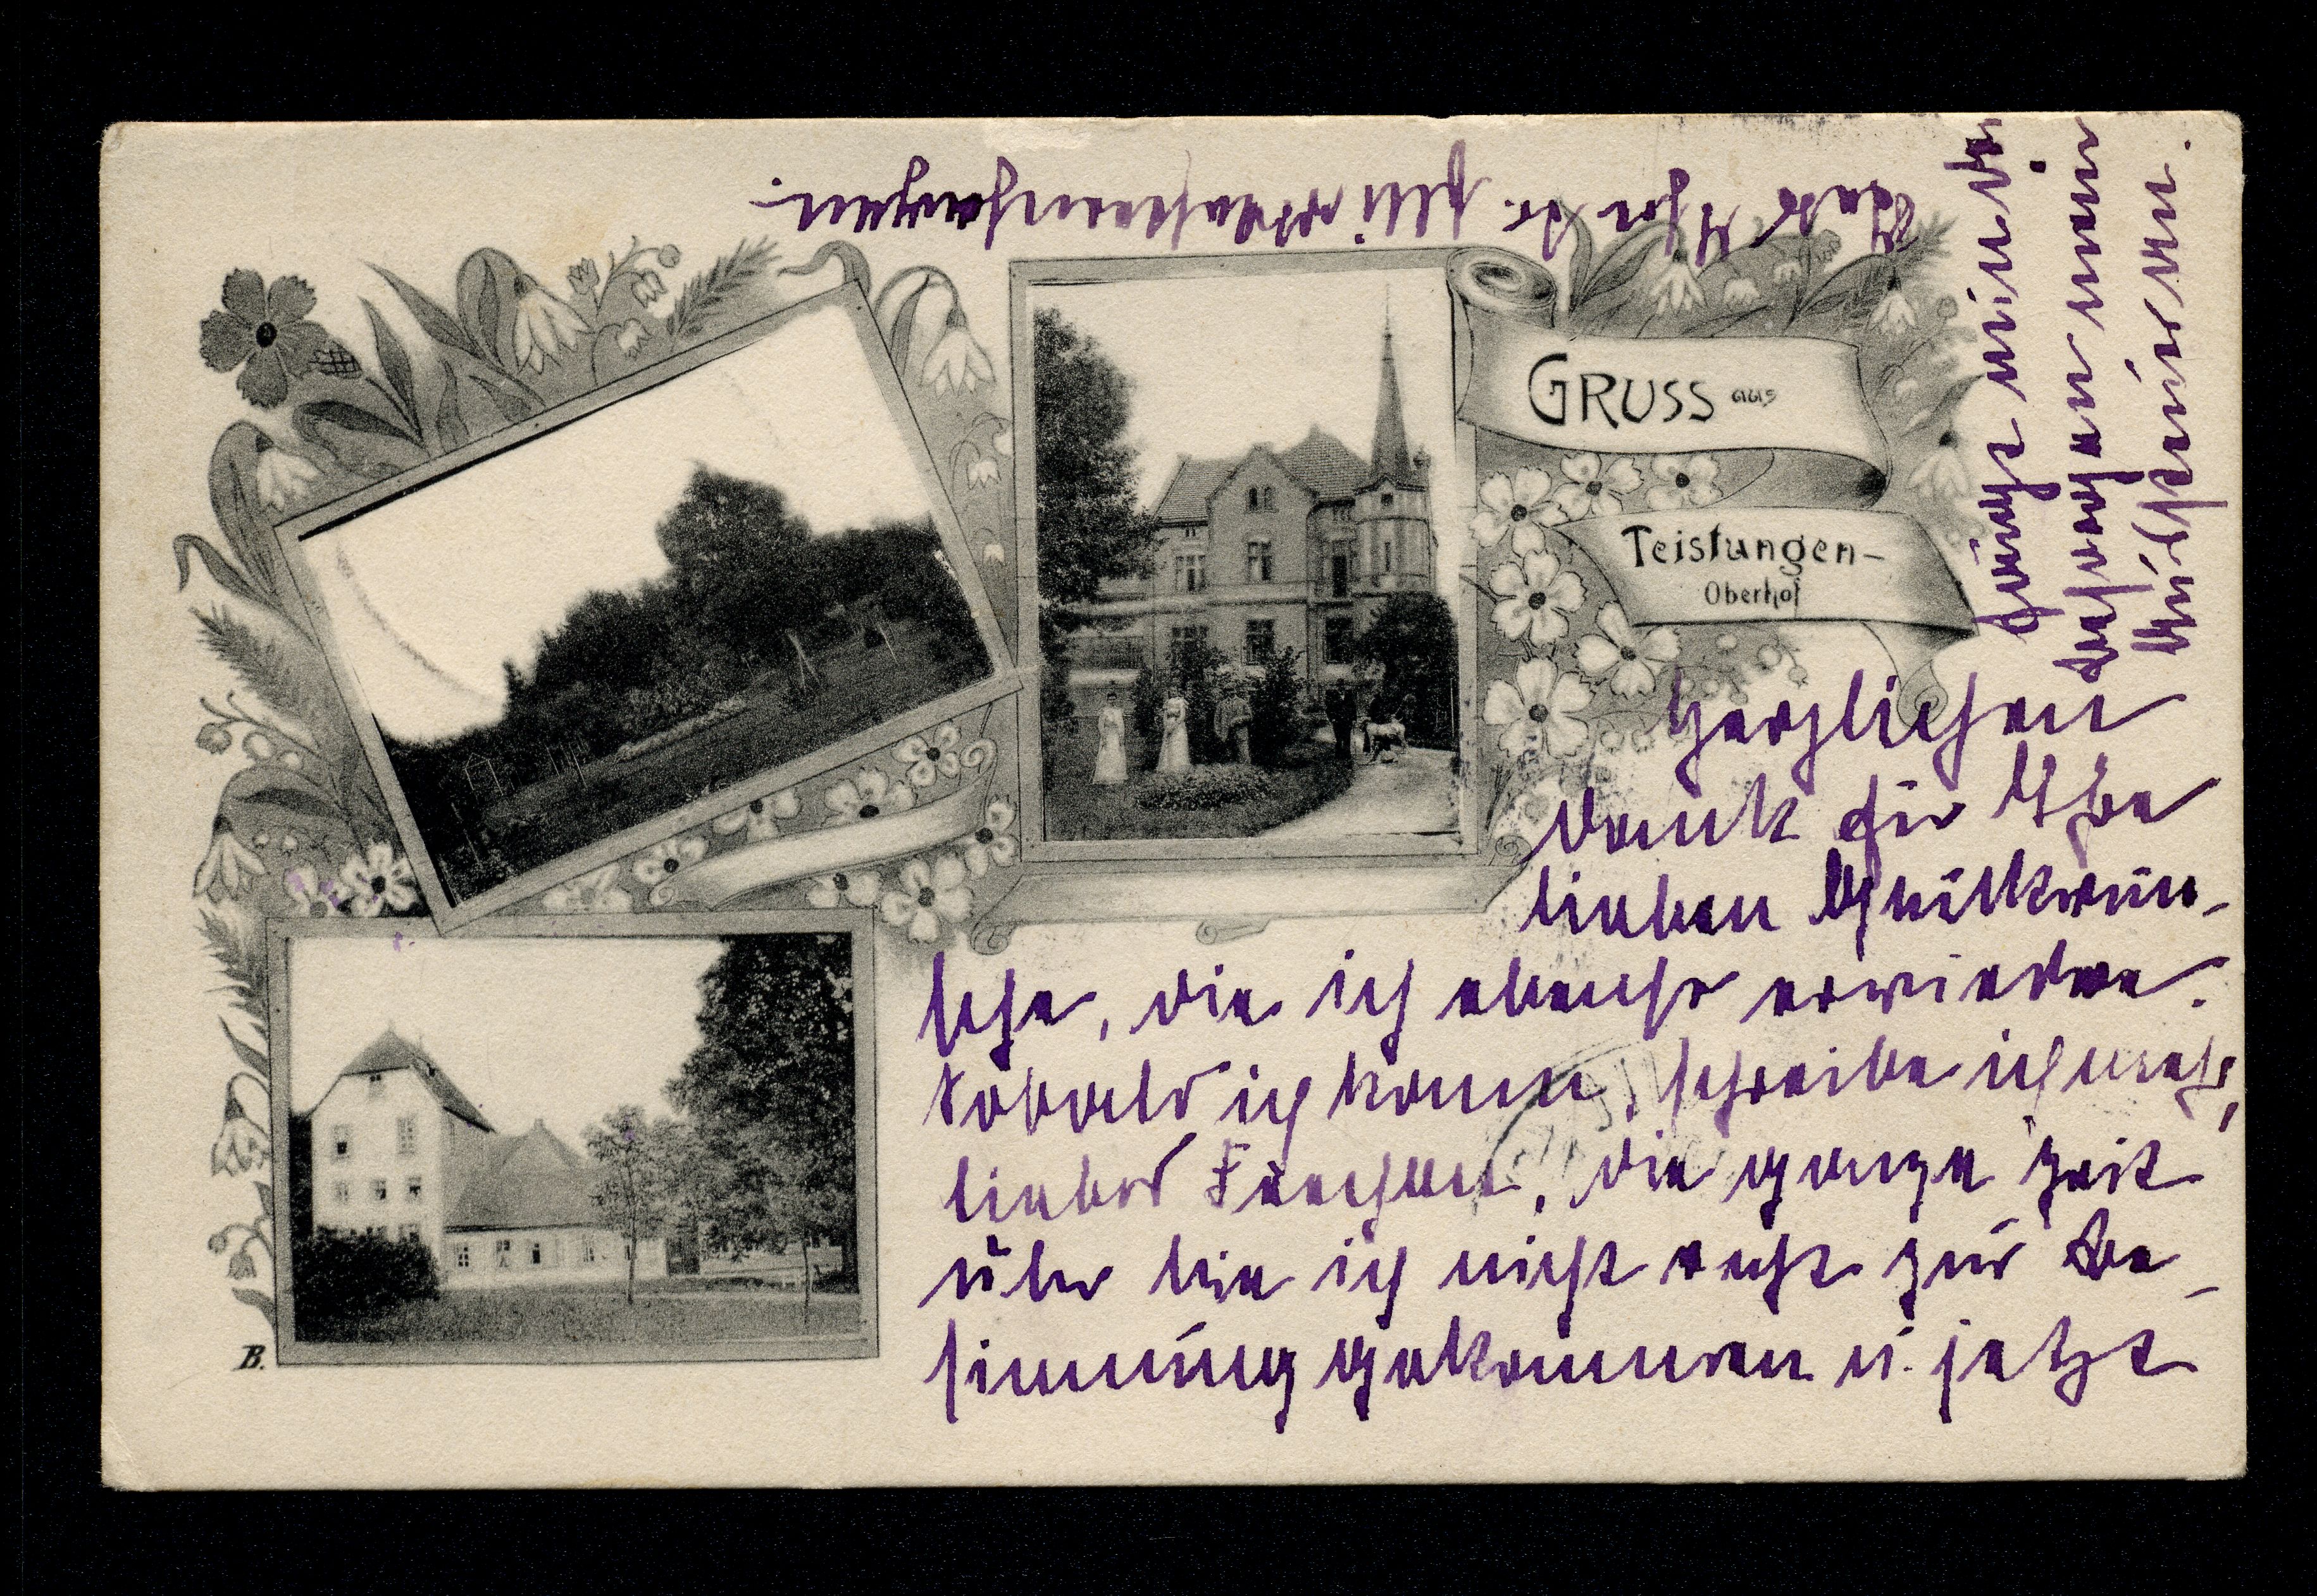 GRUSS aus
Teistungen-
Oberhof
Herzlichen
Dank für Ihre
lieben Glückwün-
sche, die ich ebenso erwiedre.
Sobald ich kann, schreibe ich mehr,
liebes Täschen, die ganze Zeit
über bin ich nicht recht zur Be-
sinnung gekommen u. jetzt
hängt mir die
deswegen mein
B.